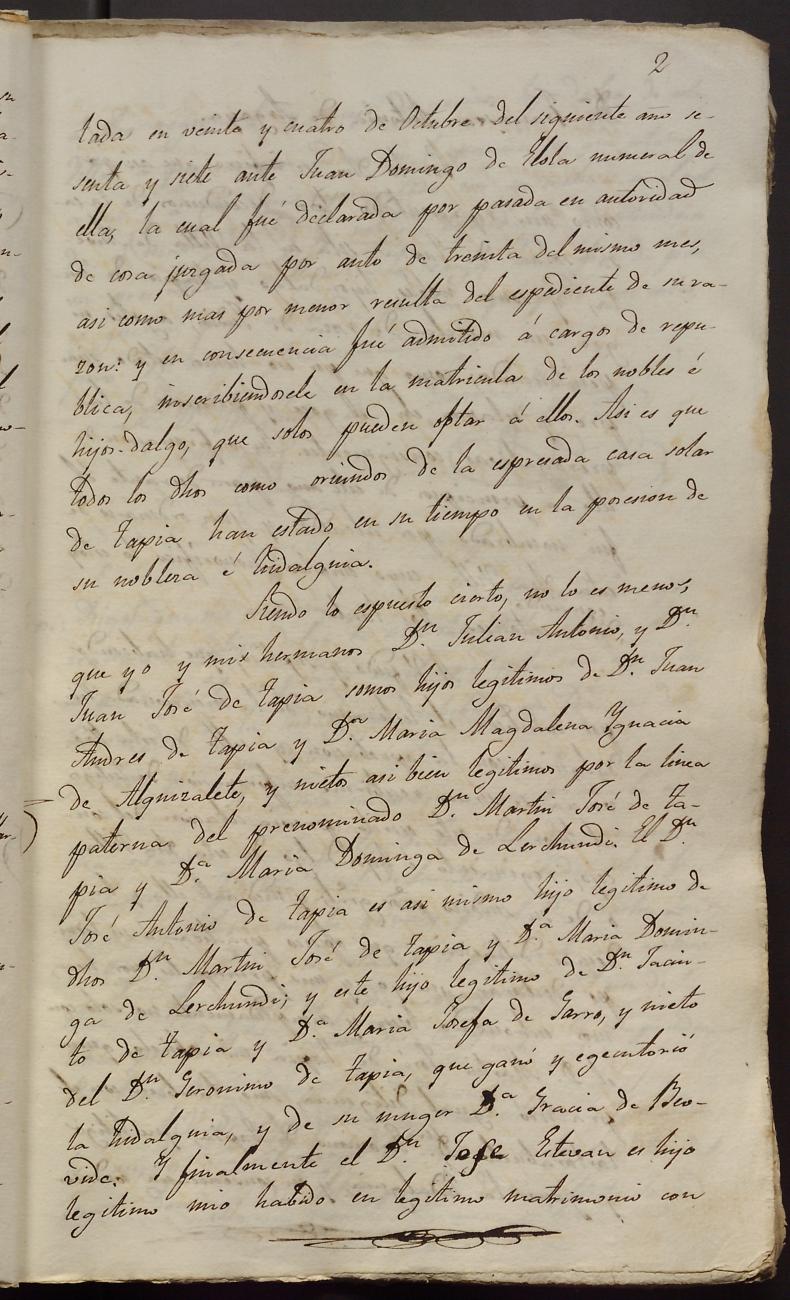 2
tada en veinte y cuatro de Octubre del siguiente ano se-
senta y siete ante Juan Domingo de Elola numeral de
ella, la cual fué declarada por pasada en autoridad
de cosa juzgada por auto de treinta del mismo mes,
asi como mas por menor resulta del espediente de su ra-
zon: y en consecuencia fué admitido á cargos de repu-
blica, inscribiendosele en la matricula de los nobles é
hijos-dalgo, que solos pueden optar á ellos. Asi es que
todos los dhos como oriundos de la espresada casa solar
de Tapia han estado en su tiempo en la posesion de
su nobleza é hidalguia.
Siendo lo espuesto cierto, no lo es menos,
que yo y mis hermanos Dn. Julian Antonio, y Dn.
Juan José de Tapia somos hijos legitimos de Dn. Juan
Andres de Tapia y Da. Maria Magdalena Ygnacia
de Alquizalete, y nietos asi bien legitimos por la linea
paterna del prenominado Dn. Martin José de Ta-
pia y Da. Maria Dominga de Lerchundi. El Dn.
José Antonio de Tapia es asi mismo hijo legitimo de
dhos Dn. Martin José de Tapia y Da. Maria Domin-
ga de Lerchundi, y este hijo legitimo de Dn. Jacin-
to de Tapia y Da. Maria Josefa de Garro, y nieto
del Dn. Geronimo de Tapia, que ganó y egecutorió
la hidalguia, y de su muger Da. Gracia de Beo-
vide. Y finalmente el Dn. Jose Estevan es hijo
legitimo mio habido en legitimo matrimonio con